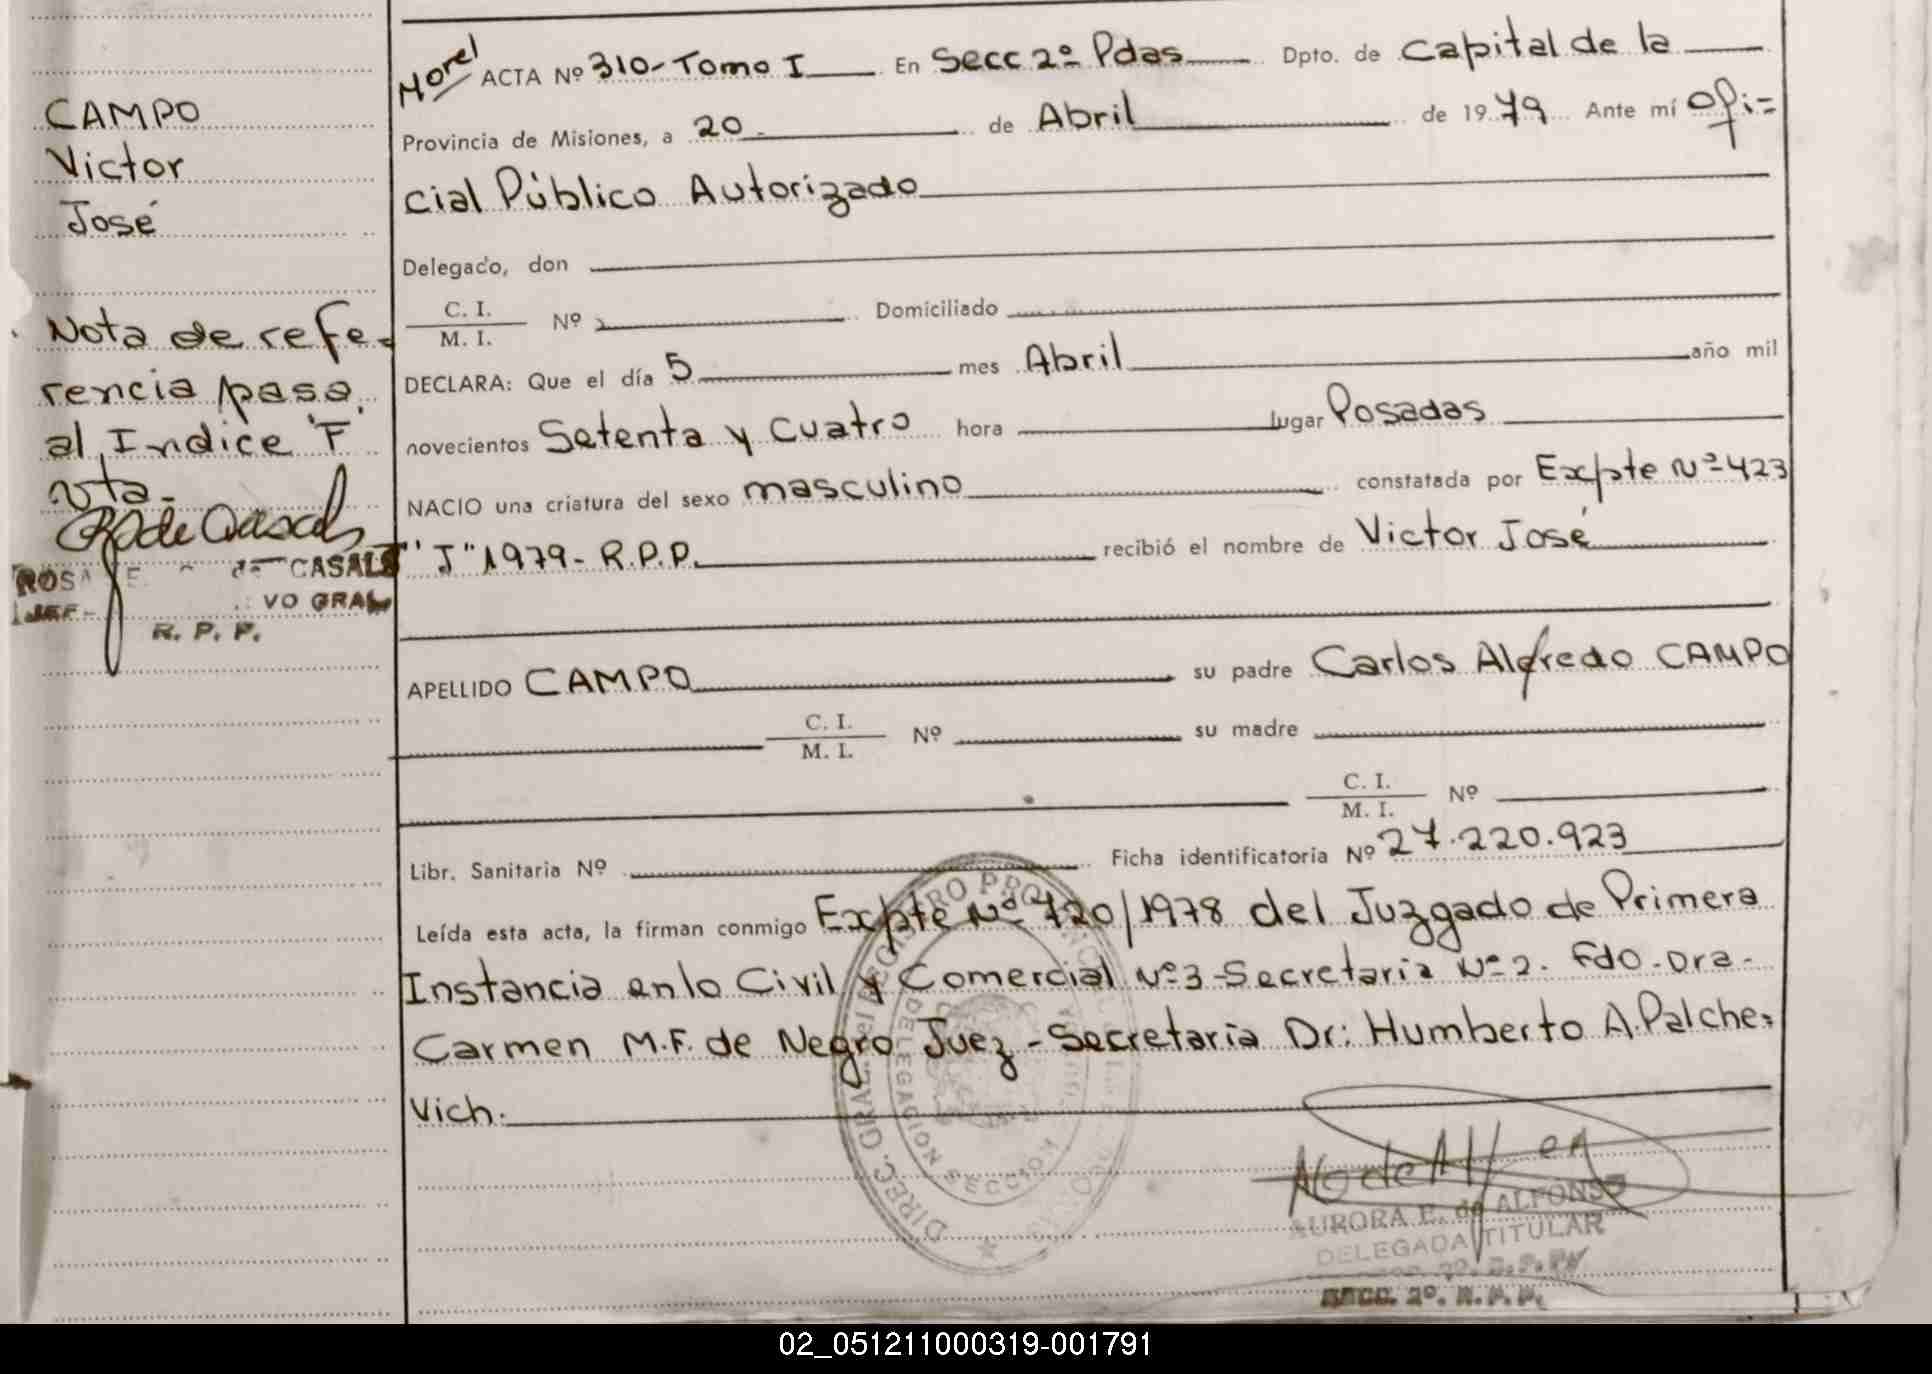 CAMPO
Victor
José
Nota de refe-
rencia pasa
al Indice "F"
vta-
ROSA E. de CASALS
JEF- VO GRAL
R. P. P.
Morel ACTA Nº 310-Tomo I En Secc 2º Pdas Dpto. de Capital de la
Provincia de Misiones, a 20 de Abril de 1979 Ante mí Ofi=
cial Público Autorizado
Delegado, don
C. I.
M. I. Nº Domiciliado
DECLARA: Que el día 5 mes Abril año mil
novecientos Setenta y Cuatro hora lugar Posadas
NACIO una criatura del sexo masculino constatada por Expte Nº 423
"J" 1979- R.P.P. recibió el nombre de Victor José
APELLIDO CAMPO su padre Carlos Alfredo CAMPO
C. I.
M. I. Nº su madre
C. I.
M. I. Nº
Libr. Sanitaria Nº Ficha identificatoria Nº 27.220.923
Leída esta acta, la firman conmigo Expte Nº 720/1978 del Juzgado de Primera
Instancia en lo Civil y Comercial Nº 3-Secretaria Nº 2. Fdo. Dra.
Carmen M.F. de Negro Juez - Secretaría Dr: Humberto A. Palche=
vich.
DIREC. GRAL. del REGISTRO PROVINCIAL
DELEGACION SECCION
AURORA E. de ALFONSO
DELEGADA TITULAR
SECC. 2º. R. P. P.
02_051211000319-001791